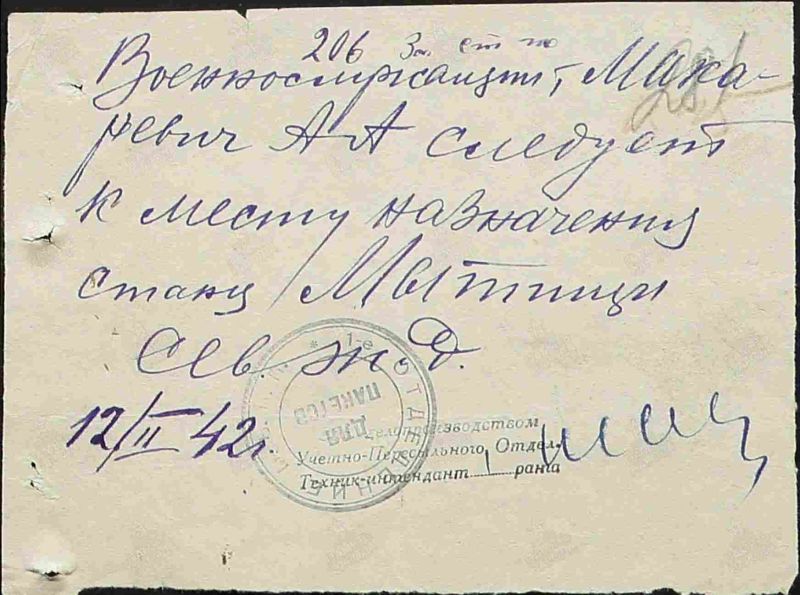 206 Зап стр по
Военнослужащий, Мака-
ревич А А следует
к месту назначения
станц Мытищи
Сев. ж. д.
12/II 42 г
* 1-е ОТДЕЛЕНИЕ
ДЛЯ ПАКЕТОВ
делопроизводством
Учетно-Пересыльного Отдел
Техник-интендант I ранга
281